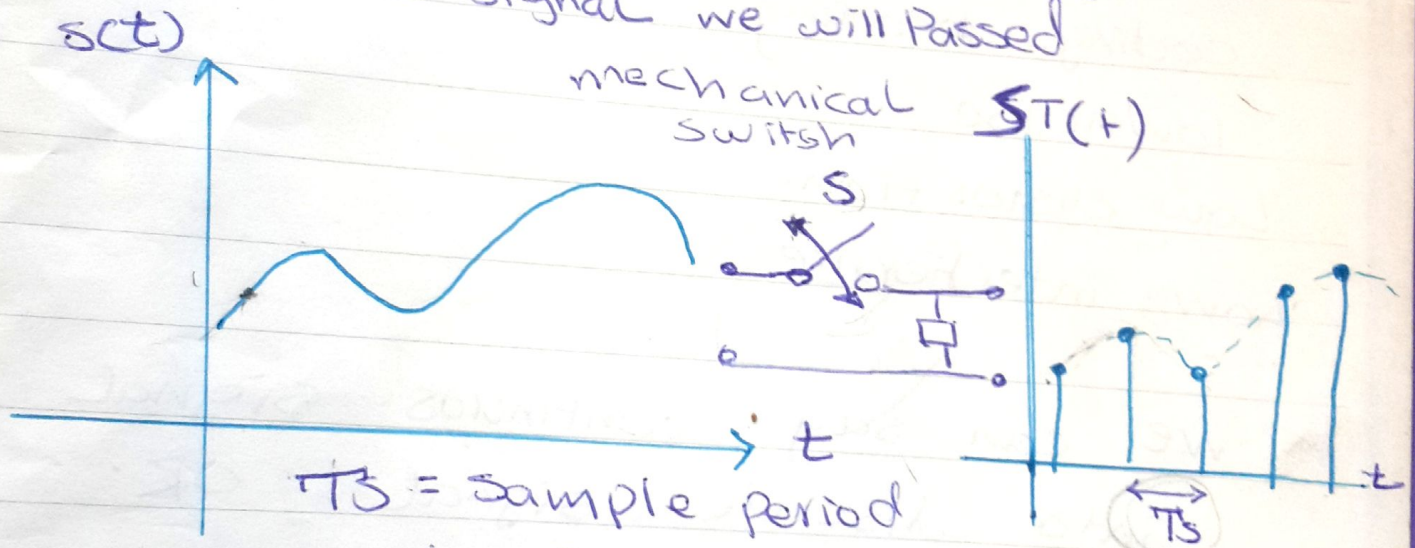 signal we will Passed
s(t)
mechanical
switsh
ST(t)
S
t
Ts = Sample period
t
Ts